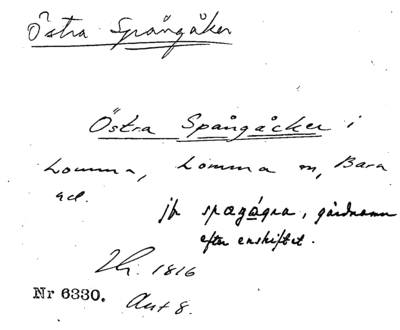 Östra Spångåker
Östra Spångåcker i
Lomma, Lomma sn, Bara
hd.
jfr spɑgågra, gårdnamn
efter enskiftet.
1816
Nr 6330. Akt 8.